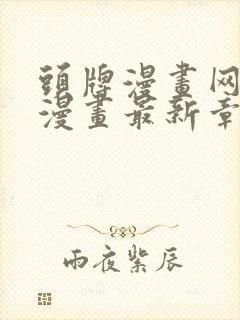 頭牌漫畫网
漫畫最新章
雨夜紫辰